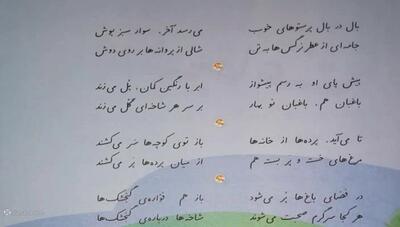 بال در بال پرستوهای خوب می رسد آخر، سوار سبز پوش
جامه ای از عطر نرگس ها به تن شالی از پروانه ها بر روی دوش
پیش پای او به رسم پیشواز ابر با رنگین کمان، پُل می زند
باغبان هم، باغبان نو بهار بر سر هر شاخه ای گُل می زند
تا می آید، پرده ها از خانه ها باز توی کوچه ها سَر می کشند
مرغ های خسته و پر بسته هم از میان پرده ها پَر می کشند
در فضای باغ ها پُر می شود باز هم فواره ی گنجشک ها
هر کجا سرگرم صحبت می شوند شاخه ها درباره ی گنجشک ها